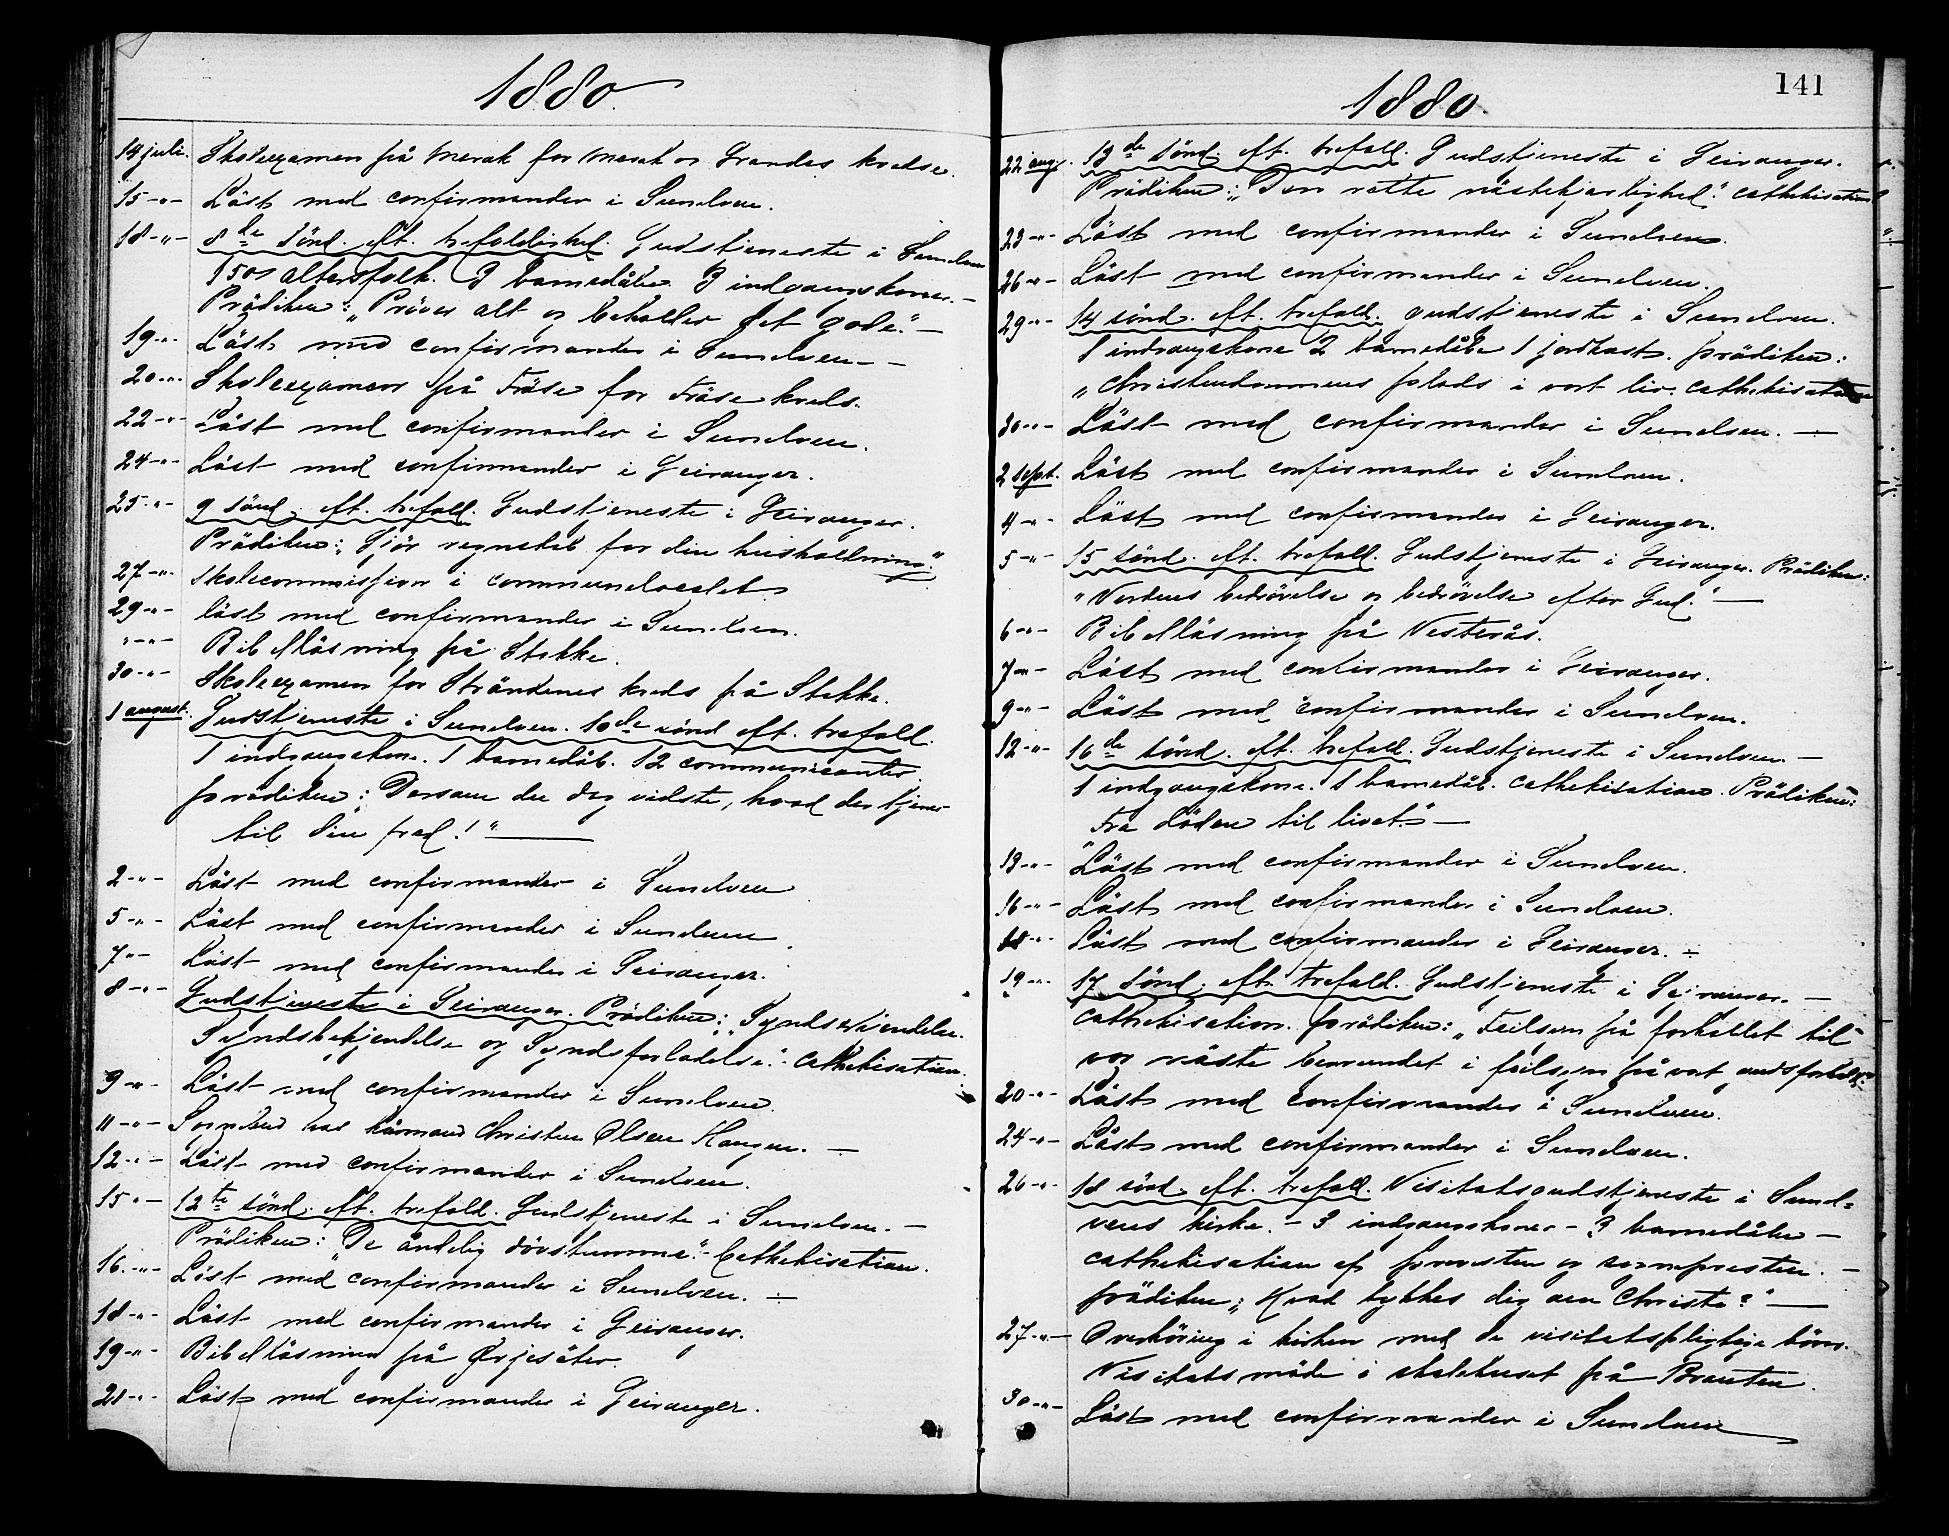 1880.
14 juli. Skoleexamen på Merak for Merak og Grandes kredse.
15 -"- Läst med confirmander i Sunelven.
18 -"- 8de sönd. eft. trefoldighed. Gudstjeneste i Sunelven
150 altersfolk. 3 barnedåbe. 3 indgangskoner. -
Prädiken: "Pröver alt og beholder det gode." -
19 -"- Läst med confirmander i Sunelven -
20 -"- Skoleexamen på Fröse for Fröse kreds.
22 -"- Läst med confirmander i Sunelven.
24 -"- Läst med confirmander i Geiranger.
25 -"- 9 sönd. eft. trefold. Gudstjeneste i Geiranger.
Prädiken: "Gjör regnskab for din husholdning."
27 -"- skolecommission i communelocalet
29 -"- läst med confirmander i Sunelven.
" -"- Bibelläsning på Stokke.
30 -"- Skoleexamen for Ströndenes kreds på Stokke.
1 august. Gudstjeneste i Sunelven. 10de sönd. eft. trefold.
1 indgangskone. 1 barnedåb. 12 communicanter
prädiken: "Dersom du dog vidste, hvad der tjener
til din fred!" -
2 -"- Läst med confirmander i Sunelven
5 -"- Läst med confirmander i Sunelven.
7 -"- Läst med confirmander i Geiranger.
8 -"- Gudstjeneste i Geiranger. Prädiken: "Syndserkjendelse.
Syndsbekjendelse og Syndsforladelse." Cathekisation.
9 -"- Läst med confirmander i Sunelven.
11 -"- Sognebud hos kårmand Christen Olsen Haugen. -
12 -"- Läst med confirmander i Sunelven.
15 -"- 12te sönd. eft. trefold. Gudstjeneste i Sunelven. -
Prädiken: "De åndelig dövstumme." - Cathekisation.
16. -"- Läst med confirmander i Sunelven. -
18 -"- Läst med confirmander i Geiranger.
19 -"- Bibelläsning på Ørjesäter.
21 -"- Läst med confirmander i Geiranger.
141
1880.
22 aug. 13de sönd. eft. trefold. Gudstjeneste i Geiranger.
Prädiken: "Den rette nästekjærlighed." cathekisation
23 -"- Läst med confirmander i Sunelven.
26 -"- Läst med confirmander i Sunelven.
29 -"- 14 sönd. eft. trefold. gudstjeneste i Sunelven.
1 indgangskone 2 barnedåbe 1 jordkast. prädiken:
"Christendommens plads i vort liv. cathekisation
30 -"- Läst med confirmander i Sunelven. -
2 sept. Läst med confirmander i Sunelven.
4 -"- Läst med confirmander i Geiranger.
5 -"- 15 sönd. eft. trefold. Gudstjeneste i Geiranger. Prädiken:
"Verdens bedrövelse og bedrövelse efter Gud." -
6 -"- Bibelläsning på Vesterås.
7 -"- Läst med confirmander i Geiranger.
9 -"- Läst med confirmander i Sunelven.
12 -"- 16de sönd. eft. trefold. Gudstjeneste i Sunelven. -
1 indgangskone. 1 barnedåb. cathekisation. Prädiken:
"Fra döden til livet." -
13 -"- Läst med confirmander i Sunelven.
16 -"- Läst med confirmander i Sunelven.
18 -"- Läst med confirmander i Geiranger. -
19 -"- 17 sönd. eft. trefold. Gudstjeneste i Geiranger. -
cathekisation. prädiken: "Feilsyn på forholdet til
vor näste begrundet i feilsyn på vort gudsforhold."
20 -"- Läst med confirmander i Sunelven.
24 -"- Läst med confirmander i Sunelven.
26 -"- 18 sönd. eft. trefold. Visitatsgudstjeneste i Sunel=
vens kirke. - 3 indgangskoner - 3 barnedåbe -
cathekisation af provsten og sognepresten. -
prädiken: "Hvad tykkes dig om Christo?" -
27 -"- Overhöring i kirken med de visitatspligtige börn.
Visitatsmöde i skolehuset på Brauten.
30 -"- Läst med confirmander i Sunelven